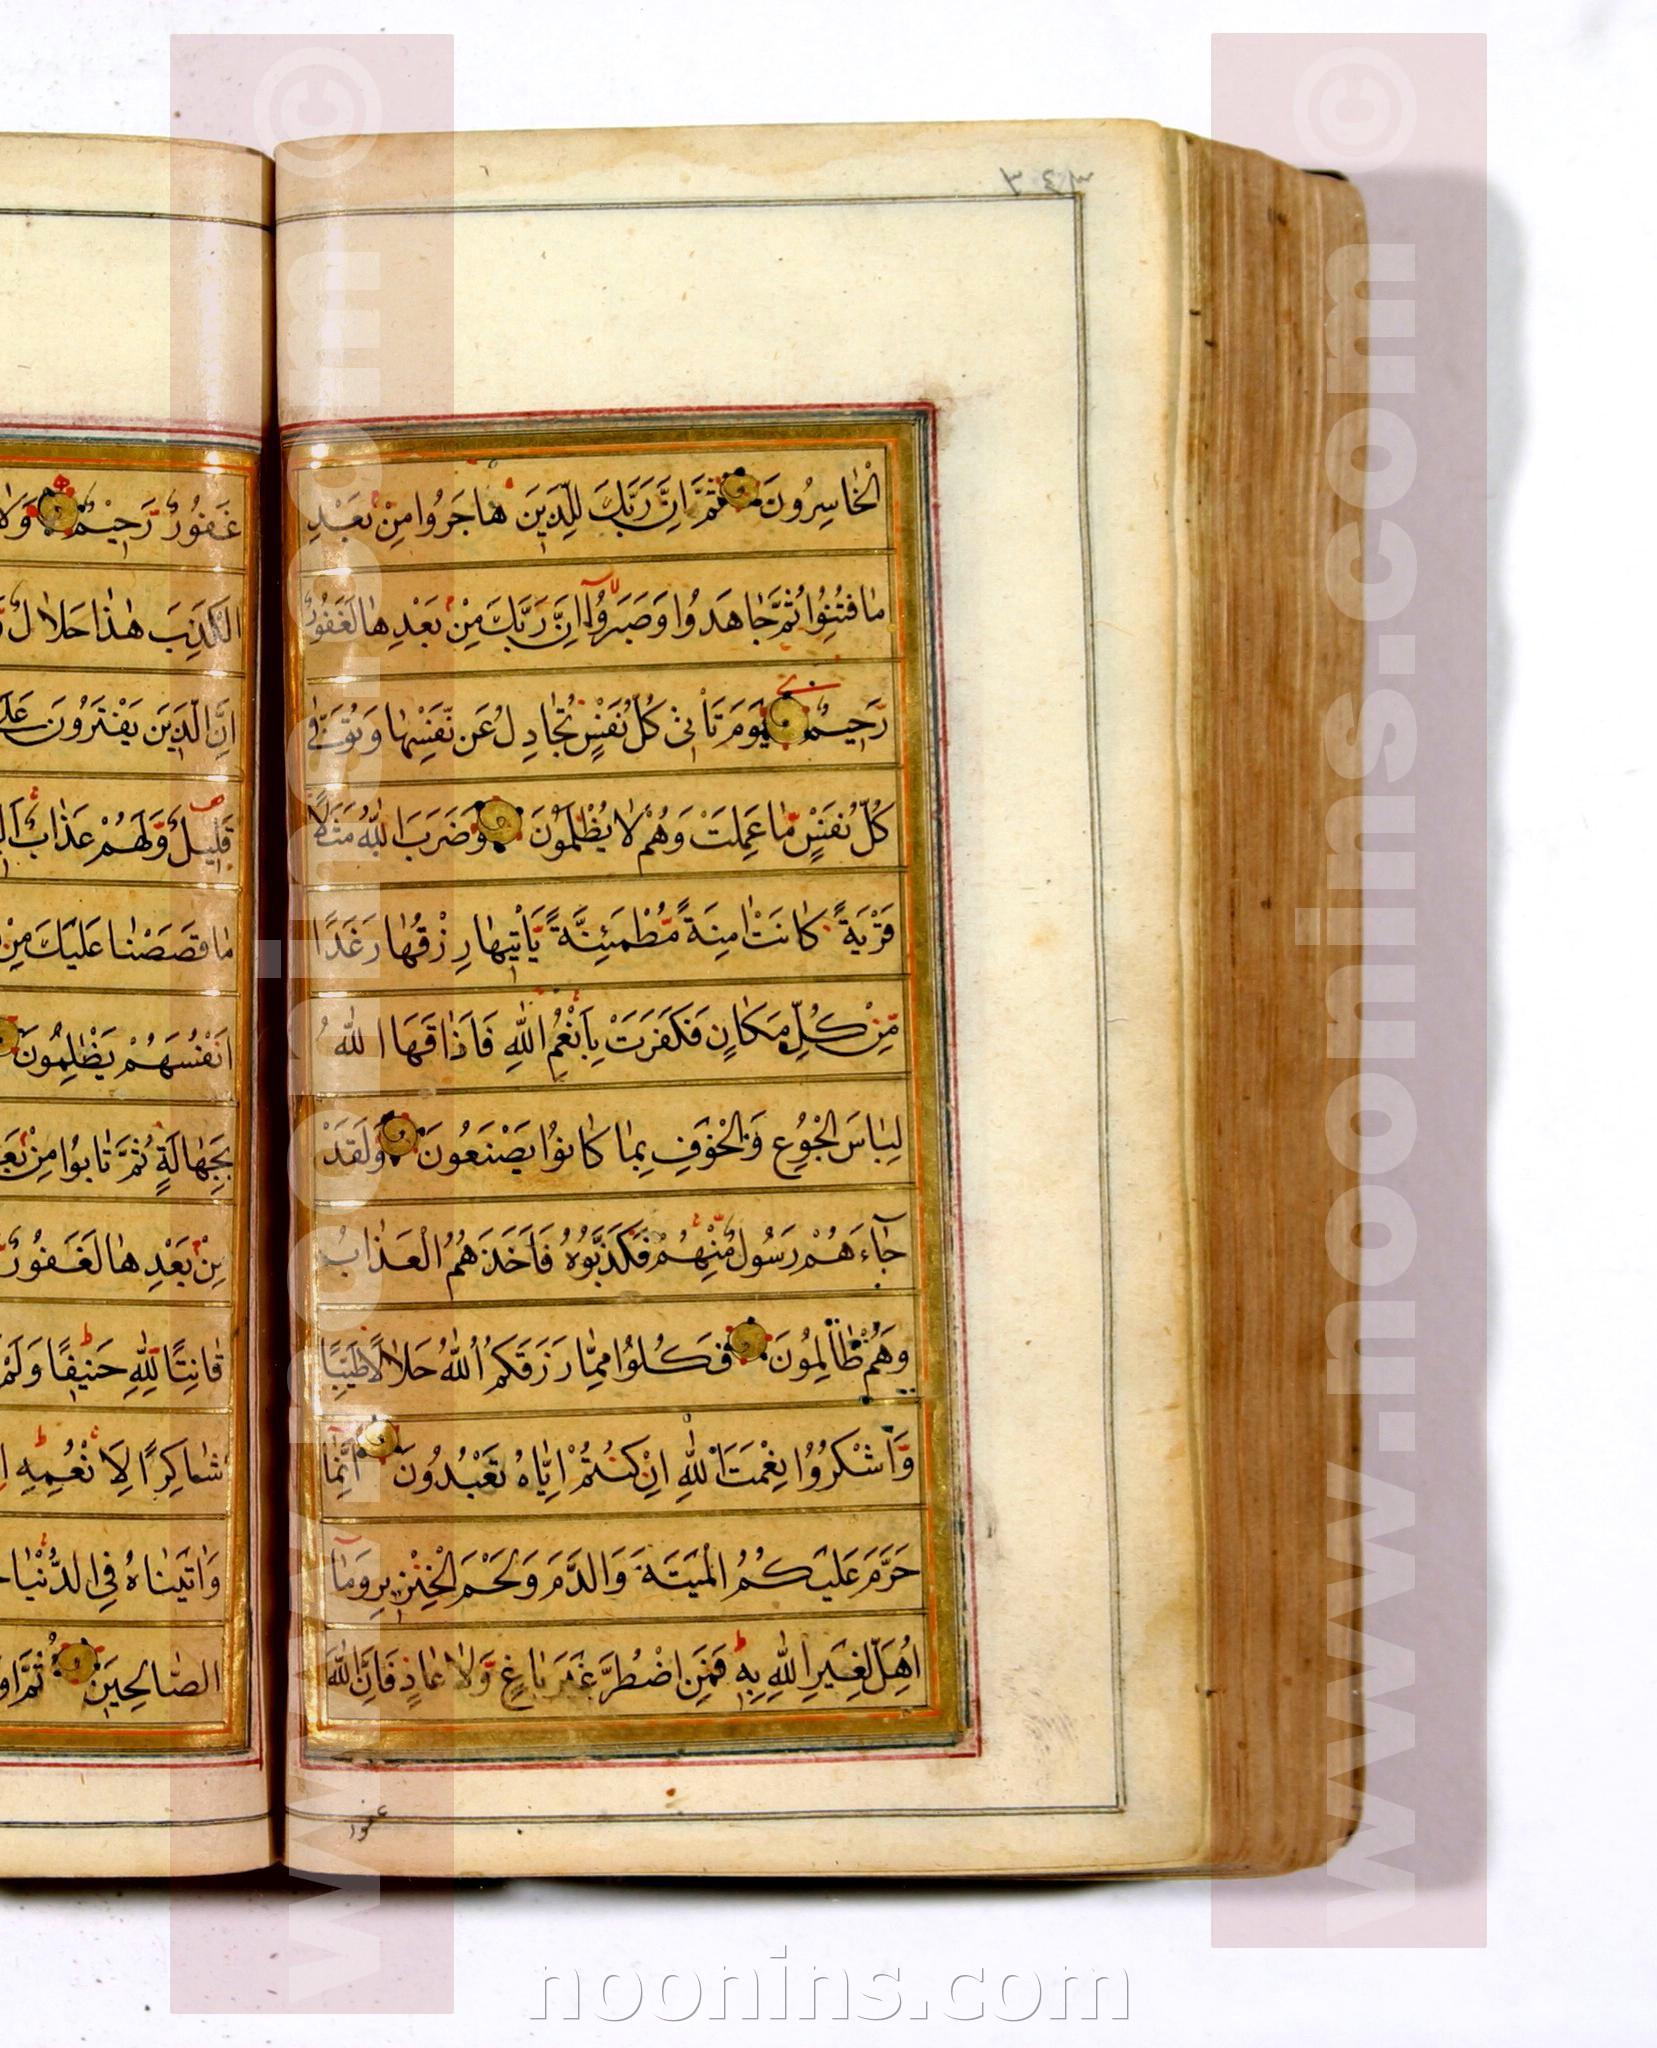 ٣٤٣
الْخٰاسِرُونَ ثُمَّ اِنَّ رَبَّكَ لِلَّذِينَ هٰاجَرُوا مِنْ بَعْدِ
مٰا فُتِنُوا ثُمَّ جٰاهَدُوا وَصَبَرُوا اِنَّ رَبَّكَ مِنْ بَعْدِهٰا لَغَفُورٌ
رَحِيمٌ يَوْمَ تَأْتِي كُلُّ نَفْسٍ تُجٰادِلُ عَنْ نَفْسِهٰا وَتُوَفّٰى
كُلُّ نَفْسٍ مٰا عَمِلَتْ وَهُمْ لٰا يُظْلَمُونَ وَضَرَبَ اللّٰهُ مَثَلًا
قَرْيَةً كٰانَتْ اٰمِنَةً مُطْمَئِنَّةً يَأْتِيهٰا رِزْقُهٰا رَغَدًا
مِنْ كُلِّ مَكٰانٍ فَكَفَرَتْ بِاَنْعُمِ اللّٰهِ فَاَذٰاقَهَا اللّٰهُ
لِبٰاسَ الْجُوعِ وَالْخَوْفِ بِمٰا كٰانُوا يَصْنَعُونَ وَلَقَدْ
جٰاءَهُمْ رَسُولٌ مِنْهُمْ فَكَذَّبُوهُ فَاَخَذَهُمُ الْعَذٰابُ
وَهُمْ ظٰالِمُونَ فَكُلُوا مِمّٰا رَزَقَكُمُ اللّٰهُ حَلٰالًا طَيِّبًا
وَاشْكُرُوا نِعْمَتَ اللّٰهِ اِنْ كُنْتُمْ اِيّٰاهُ تَعْبُدُونَ اِنَّمٰا
حَرَّمَ عَلَيْكُمُ الْمَيْتَةَ وَالدَّمَ وَلَحْمَ الْخِنْزِيرِ وَمٰا
اُهِلَّ لِغَيْرِ اللّٰهِ بِهِ فَمَنِ اضْطُرَّ غَيْرَ بٰاغٍ وَلٰا عٰادٍ فَاِنَّ اللّٰهَ
غفور
غَفُورٌ رَحِيمٌ وَلٰا
الْكَذِبَ هٰذٰا حَلٰالٌ
اِنَّ الَّذِينَ يَفْتَرُونَ عَلَى
قَلِيلٌ وَلَهُمْ عَذٰابٌ
مٰا قَصَصْنٰا عَلَيْكَ مِنْ
اَنْفُسَهُمْ يَظْلِمُونَ
بِجَهٰالَةٍ ثُمَّ تٰابُوا مِنْ
مِنْ بَعْدِهٰا لَغَفُورٌ
قٰانِتًا لِلّٰهِ حَنِيفًا وَلَمْ
شٰاكِرًا لِاَنْعُمِهِ
وَاٰتَيْنٰاهُ فِي الدُّنْيٰا
الصّٰالِحِينَ ثُمَّ
© www.noonins.com
© www.noonins.com
noonins.com